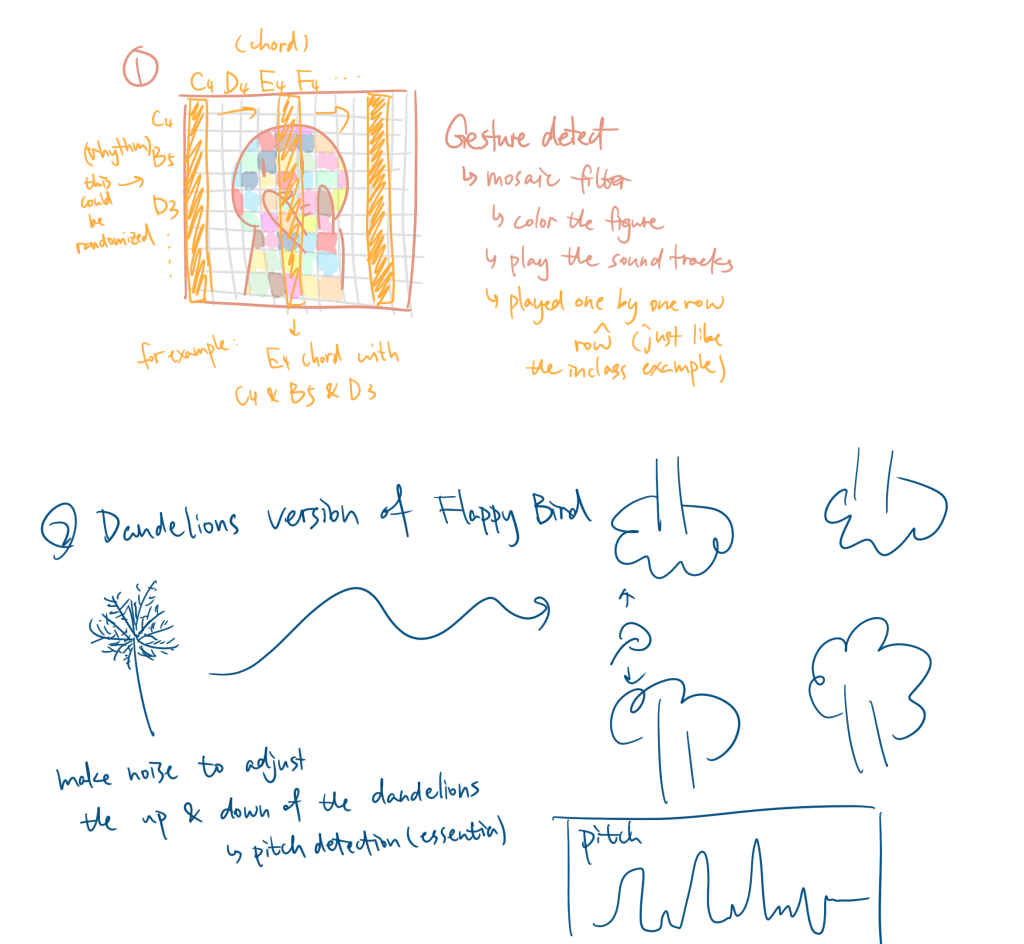 (chord)
①
C4 D4 E4 F4 ...
C4
(rhythm) B5
this →
could
be
randomized
D3
Gesture detect
↳ mosaic filter
↳ color the figure
↳ play the sound tracks
↳ played one by one row
row (just like
the inclass example)
for example:
E4 chord with
C4 & B5 & D3
② Dandelions version of Flappy Bird
make noise to adjust
the up & down of the dandelions
↳ pitch detection (essentia)
pitch